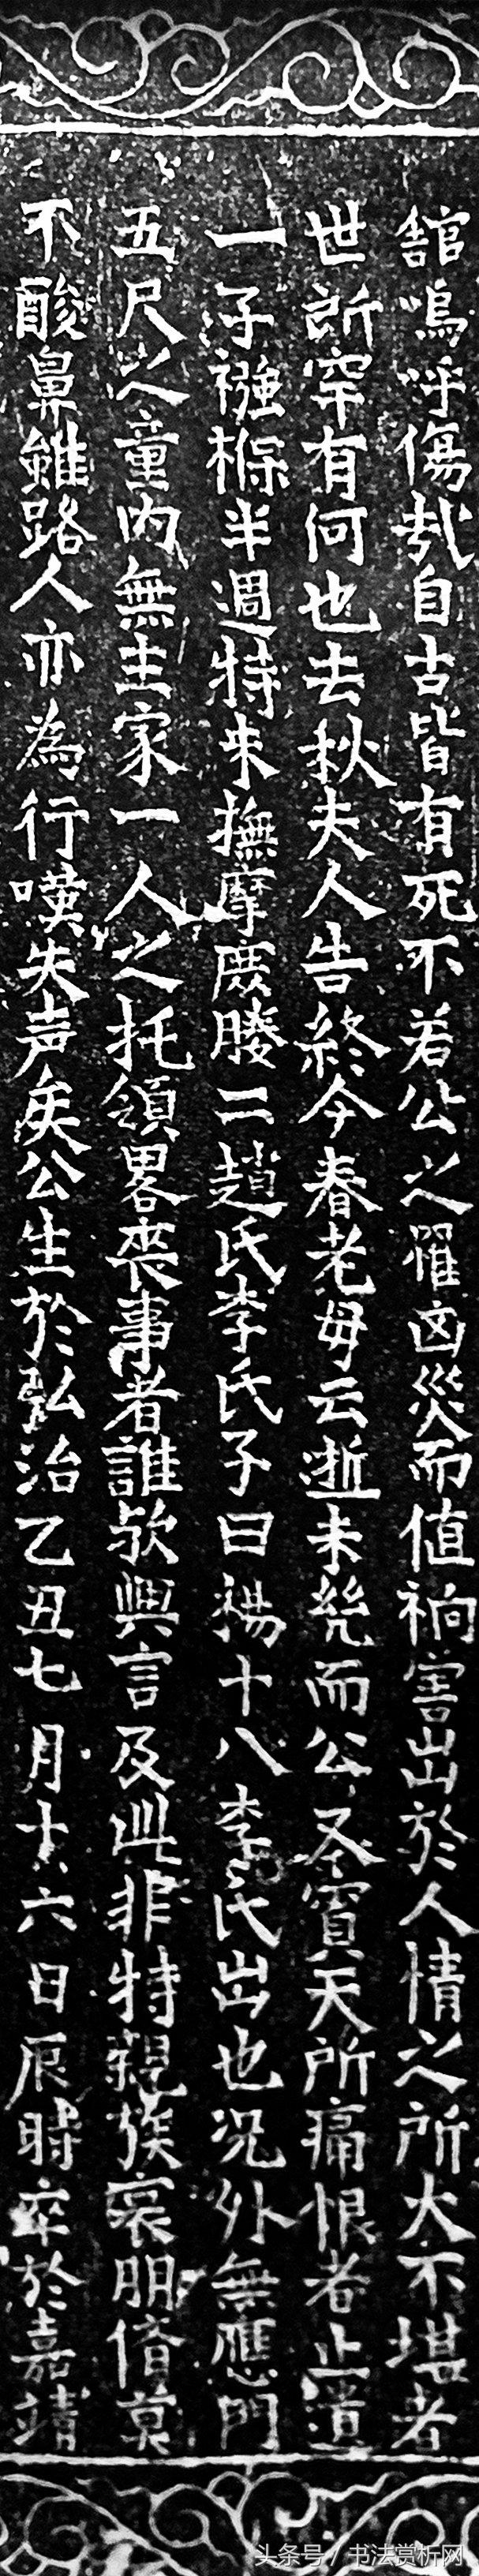 舘嗚呼傷哉自古皆有死不若公之罹凶災而值禍害出於人情之所大不堪者
世所罕有何也去秋夫人告終今春老母云逝未筦而公又賓天所痛恨者止遺
一子襁褓半週特未撫摩庶媵二趙氏李氏子曰楊十八李氏出也况外無應門
五尺之童内無主家一人之托領畧喪事者誰欤興言及此非特親族哀朋偕莫
不酸鼻雖路人亦為行嘆失声矣公生於弘治乙丑七月十六日辰時卒於嘉靖
头条号 / 书法赏析网